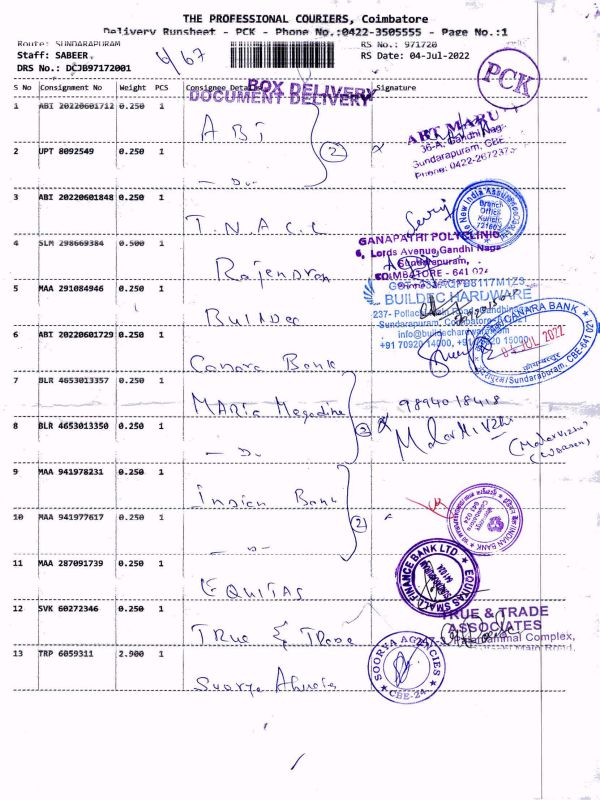 THE PROFESSIONAL COURIERS, Coimbatore
Delivery Runsheet - PCK - Phone No.:0422-3505555 - Page No.:1
Route: SUNDARAPURAM
RS No.: 971720
Staff: SABEER.
RS Date: 04-Jul-2022
DRS No.: DCJB97172001
6/67
PCK
S No Consignment No Weight PCS Consignee Details Signature
BOX DELIVERY
DOCUMENT DELIVERY
1 ABI 20220601712 0.250 1
ABI
ABT MARU
36-A, Gandhi Nag
Sundarapuram, CBE
Phone: 0422-267237
2 UPT 8092549 0.250 1
2
- Do -
3 ABI 20220601848 0.250 1
T.N.A.C.C
New India Assurance
Branch Office
4 SLM 298669384 0.500 1
Rajendran
GANAPATHI POLYCLINIC
6, Lords Avenue, Gandhi Naga
Sundarapuram,
COIMBATORE - 641 024
5 MAA 291084946 0.250 1
BUILDEC
BUILDEC HARDWARE
237- Pollachi Main Road, Gandhinagar
Sundarapuram, Coimbatore
info@buildechardware
+91 70920 14000, +91 70920 15000
6 ABI 20220601729 0.250 1
Canara Bank
CANARA BANK
04 JUL 2022
Sundarapuram, CBE-641 021
7 BLR 4653013357 0.250 1
MARIA Magadine
9894018418
8 BLR 4653013350 0.250 1
2
- Do -
MalarMizhi
9 MAA 941978231 0.250 1
Indian Bank
INDIAN BANK
10 MAA 941977617 0.250 1
2
- D -
11 MAA 287091739 0.250 1
EQUITAS
EQUITAS SMALL FINANCE BANK LTD
12 SVK 60272346 0.250 1
TRUE & Trade
TRUE & TRADE
ASSOCIATES
Complex,
Main Road,
13 TRP 6059311 2.900 1
SOORYA AGENCIES
CBE-24.